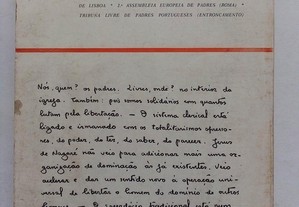 DE LISBOA * 2.ª ASSEMBLEIA EUROPEIA DE PADRES (ROMA) *
TRIBUNA LIVRE DE PADRES PORTUGUESES (ENTRONCAMENTO)
Nós, quem? os padres. Livres, onde? no interior da
igreja. Também: pois somos solidários com quantos
lutam pela libertação. — O sistema clerical está
ligado e irmanado com os totalitarismos opresso-
res, do poder, do ter, do saber, do parecer. Jesus
de Nazaré não veio para adicionar mais uma or-
ganização de dominação às já existentes. Veio
acelerar e dar um sentido novo à operação uni-
versal de libertar o homem do domínio de outros
tradicional está